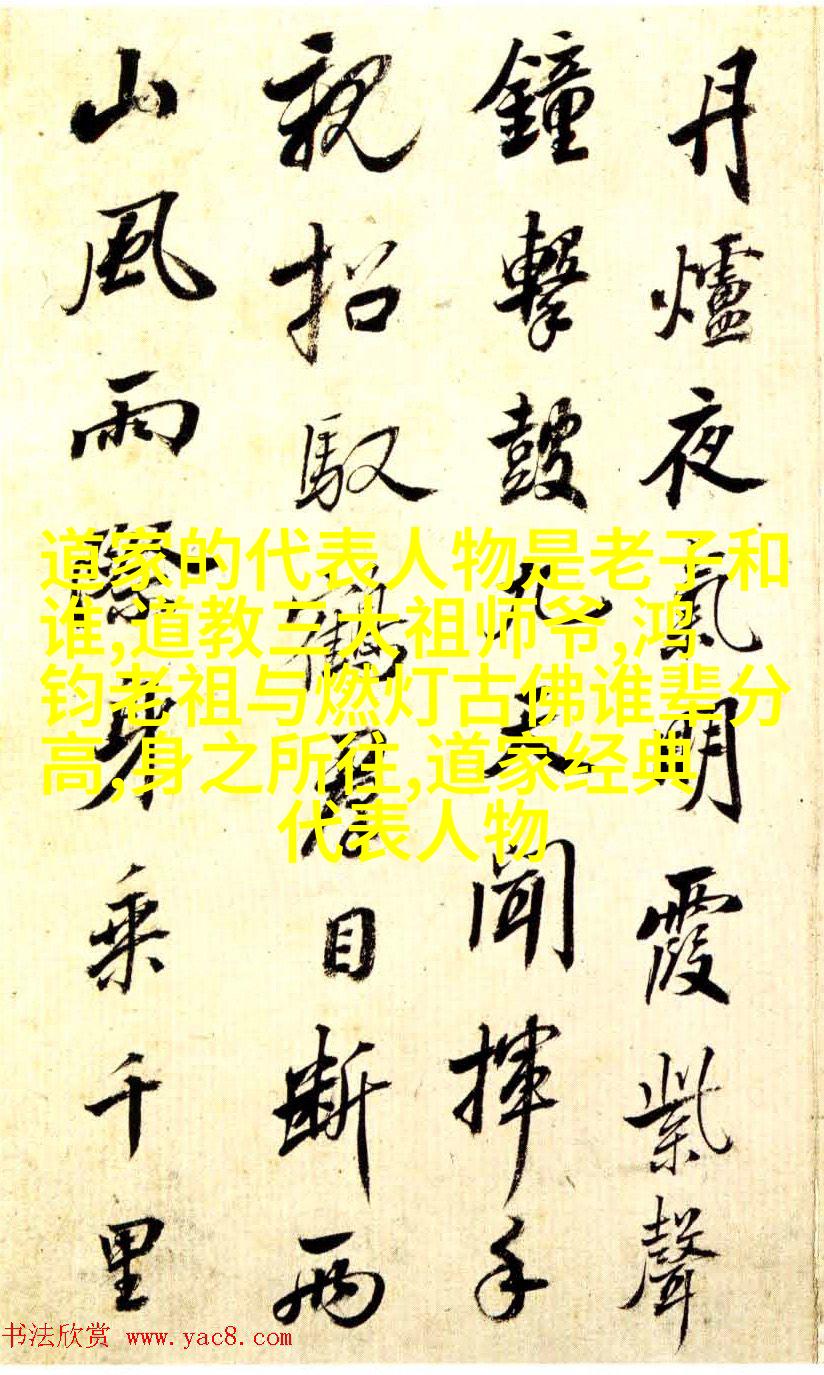 丹爐夜氣明霞紫聲
鐘擊鼓九天聞揮手
親招馭鶴君目斷兩
山風雨際身乘千里
道家的代表人物是老子和
谁,道教三大祖师爷,鸿
钧老祖与燃灯古佛谁辈分
高,身之所往,道家经典
代表人物
书法欣赏 www.yac8.com